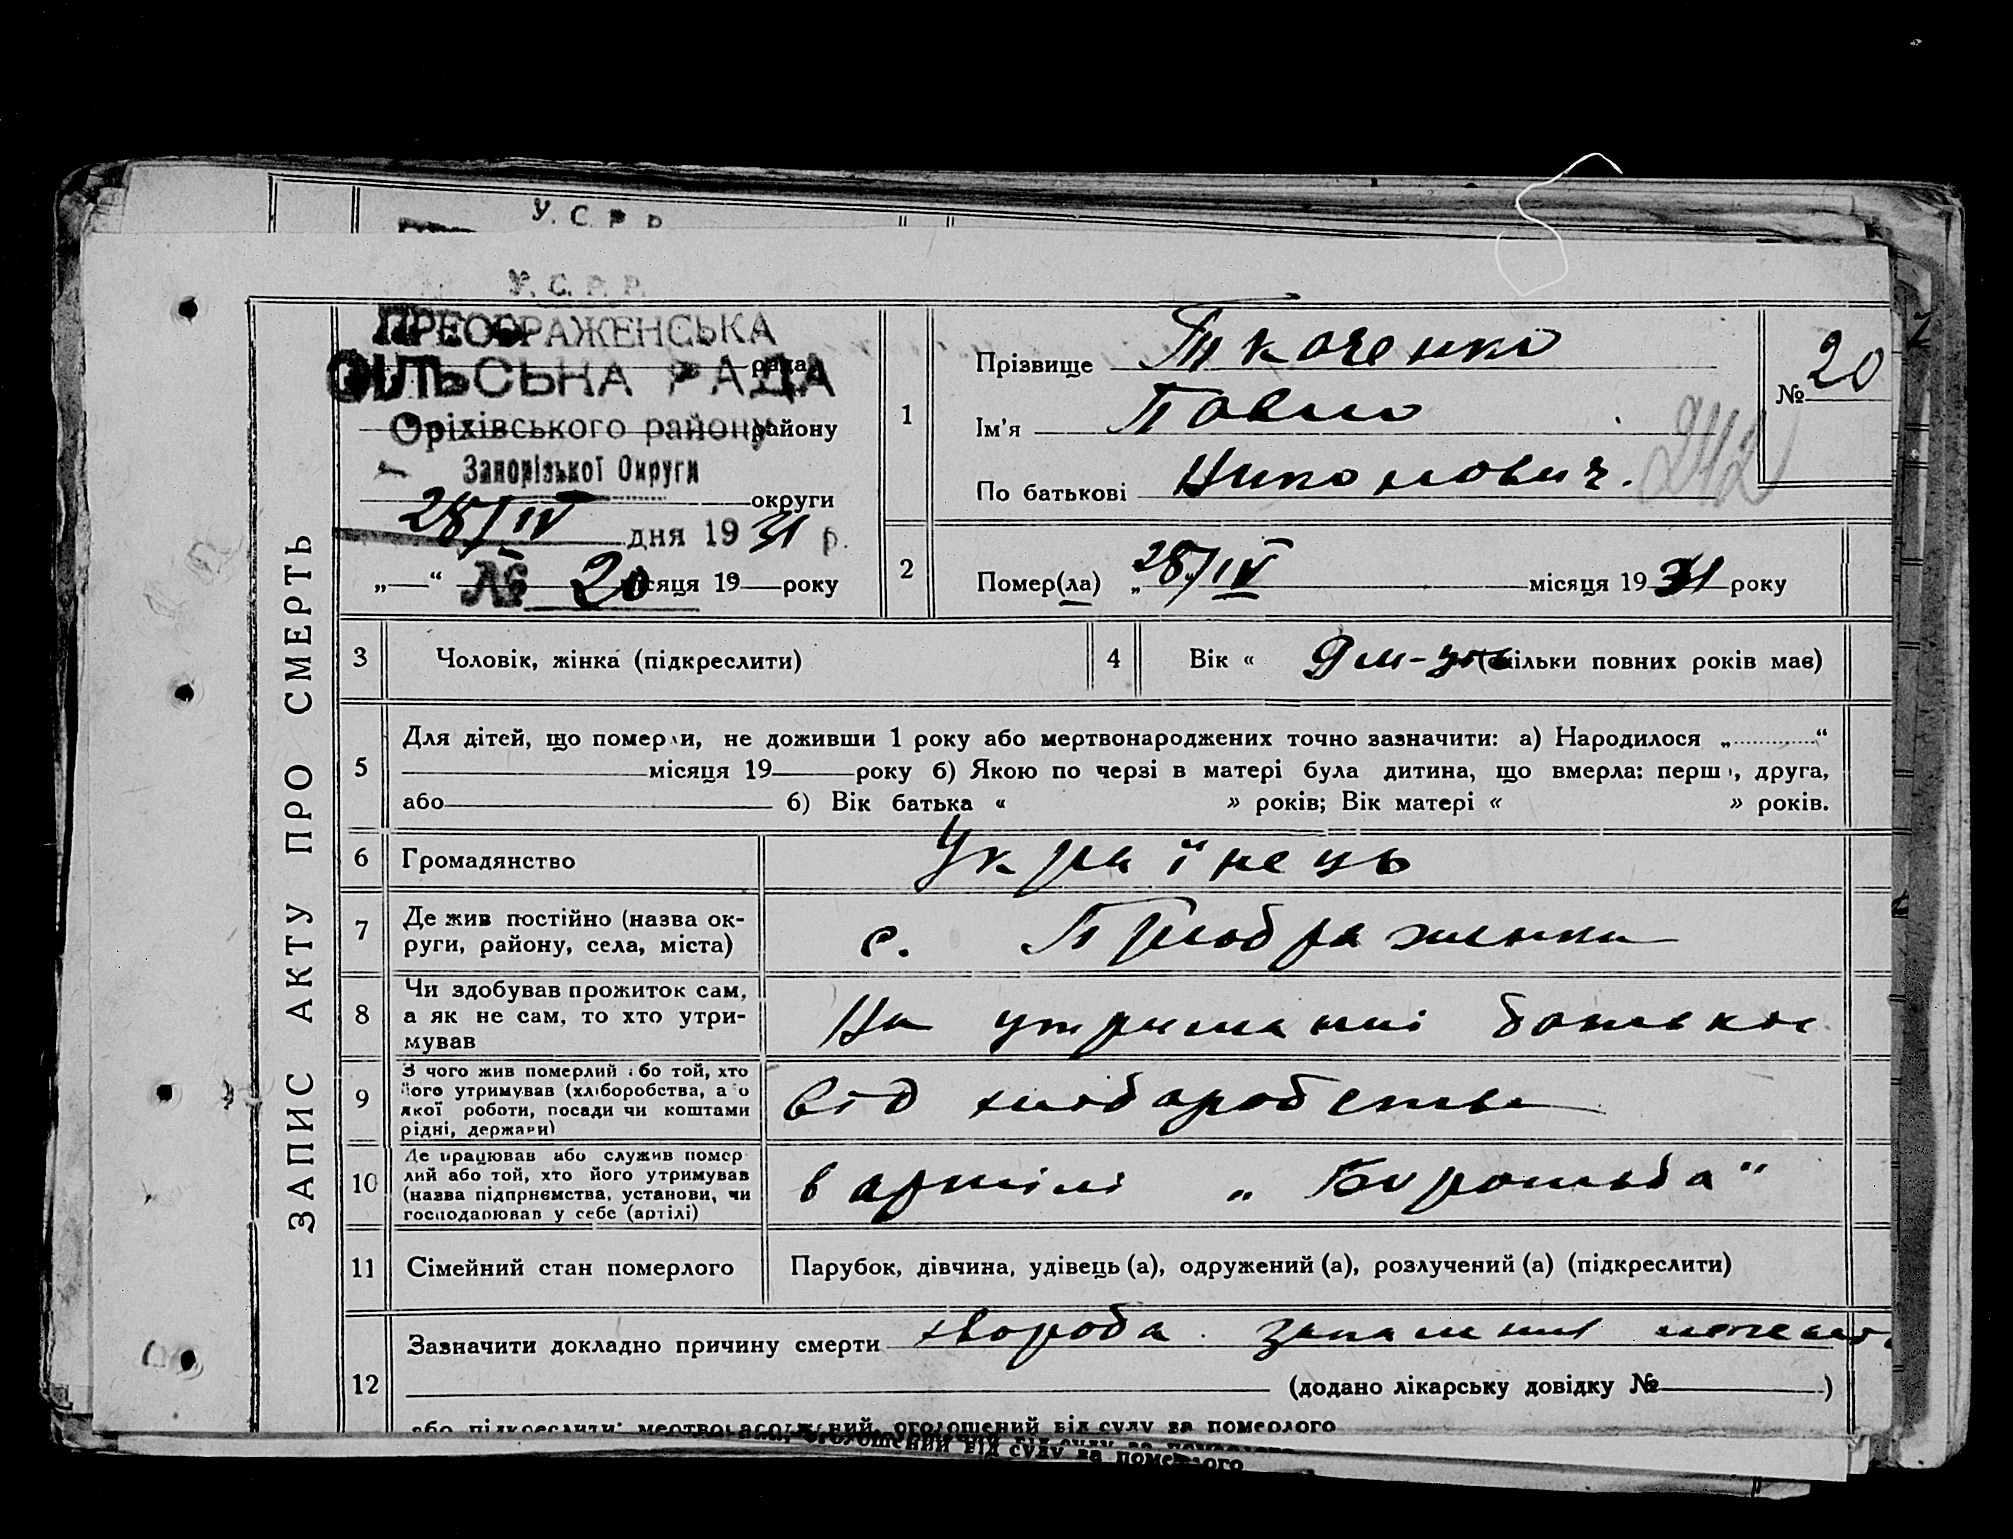 У. С. Р. Р.
У. С. Р. Р.
ЗАПИС АКТУ ПРО СМЕРТЬ
ПРЕОБРАЖЕНСЬКА
СІЛЬСЬКА РАДА рада
Оріхівського району району
Запорізької Округи
округи
28/IV дня 1931 р.
„—“ місяця 19 року
№ 20
1
Прізвище Ткаченко
Ім’я Павло
По батькові Никонович.
№ 20
242
2 Помер(ла) „28/IV місяця 1931 року
3 Чоловік, жінка (підкреслити)
4 Вік « 9 м-ців (скільки повних років має)
5 Для дітей, що померли, не доживши 1 року або мертвонароджених точно зазначити: а) Народилося „ “
місяця 19 року б) Якою по черзі в матері була дитина, що вмерла: перша, друга,
або б) Вік батька « » років; Вік матері « » років.
6 Громадянство Українець
7 Де жив постійно (назва ок-
руги, району, села, міста) с. Преображенка
8 Чи здобував прожиток сам,
а як не сам, то хто утри-
мував На утриманні батьков
9 З чого жив померлий або той, хто
його утримував (хліборобства, або
якої роботи, посади чи коштами
рідні, держави) від хліборобства
10 Де працював або служив помер
лий або той, хто його утримував
(назва підприємства, установи, чи
господарював у себе (артілі) в артілі „Боротьба“
11 Сімейний стан померлого Парубок, дівчина, удівець (а), одружений (а), розлучений (а) (підкреслити)
12 Зазначити докладно причину смерти хвороба запалення
(додано лікарську довідку № )
або підкреслити: мертвонароджений, оголошений від суду за померлого
оголошений від суду за померлого